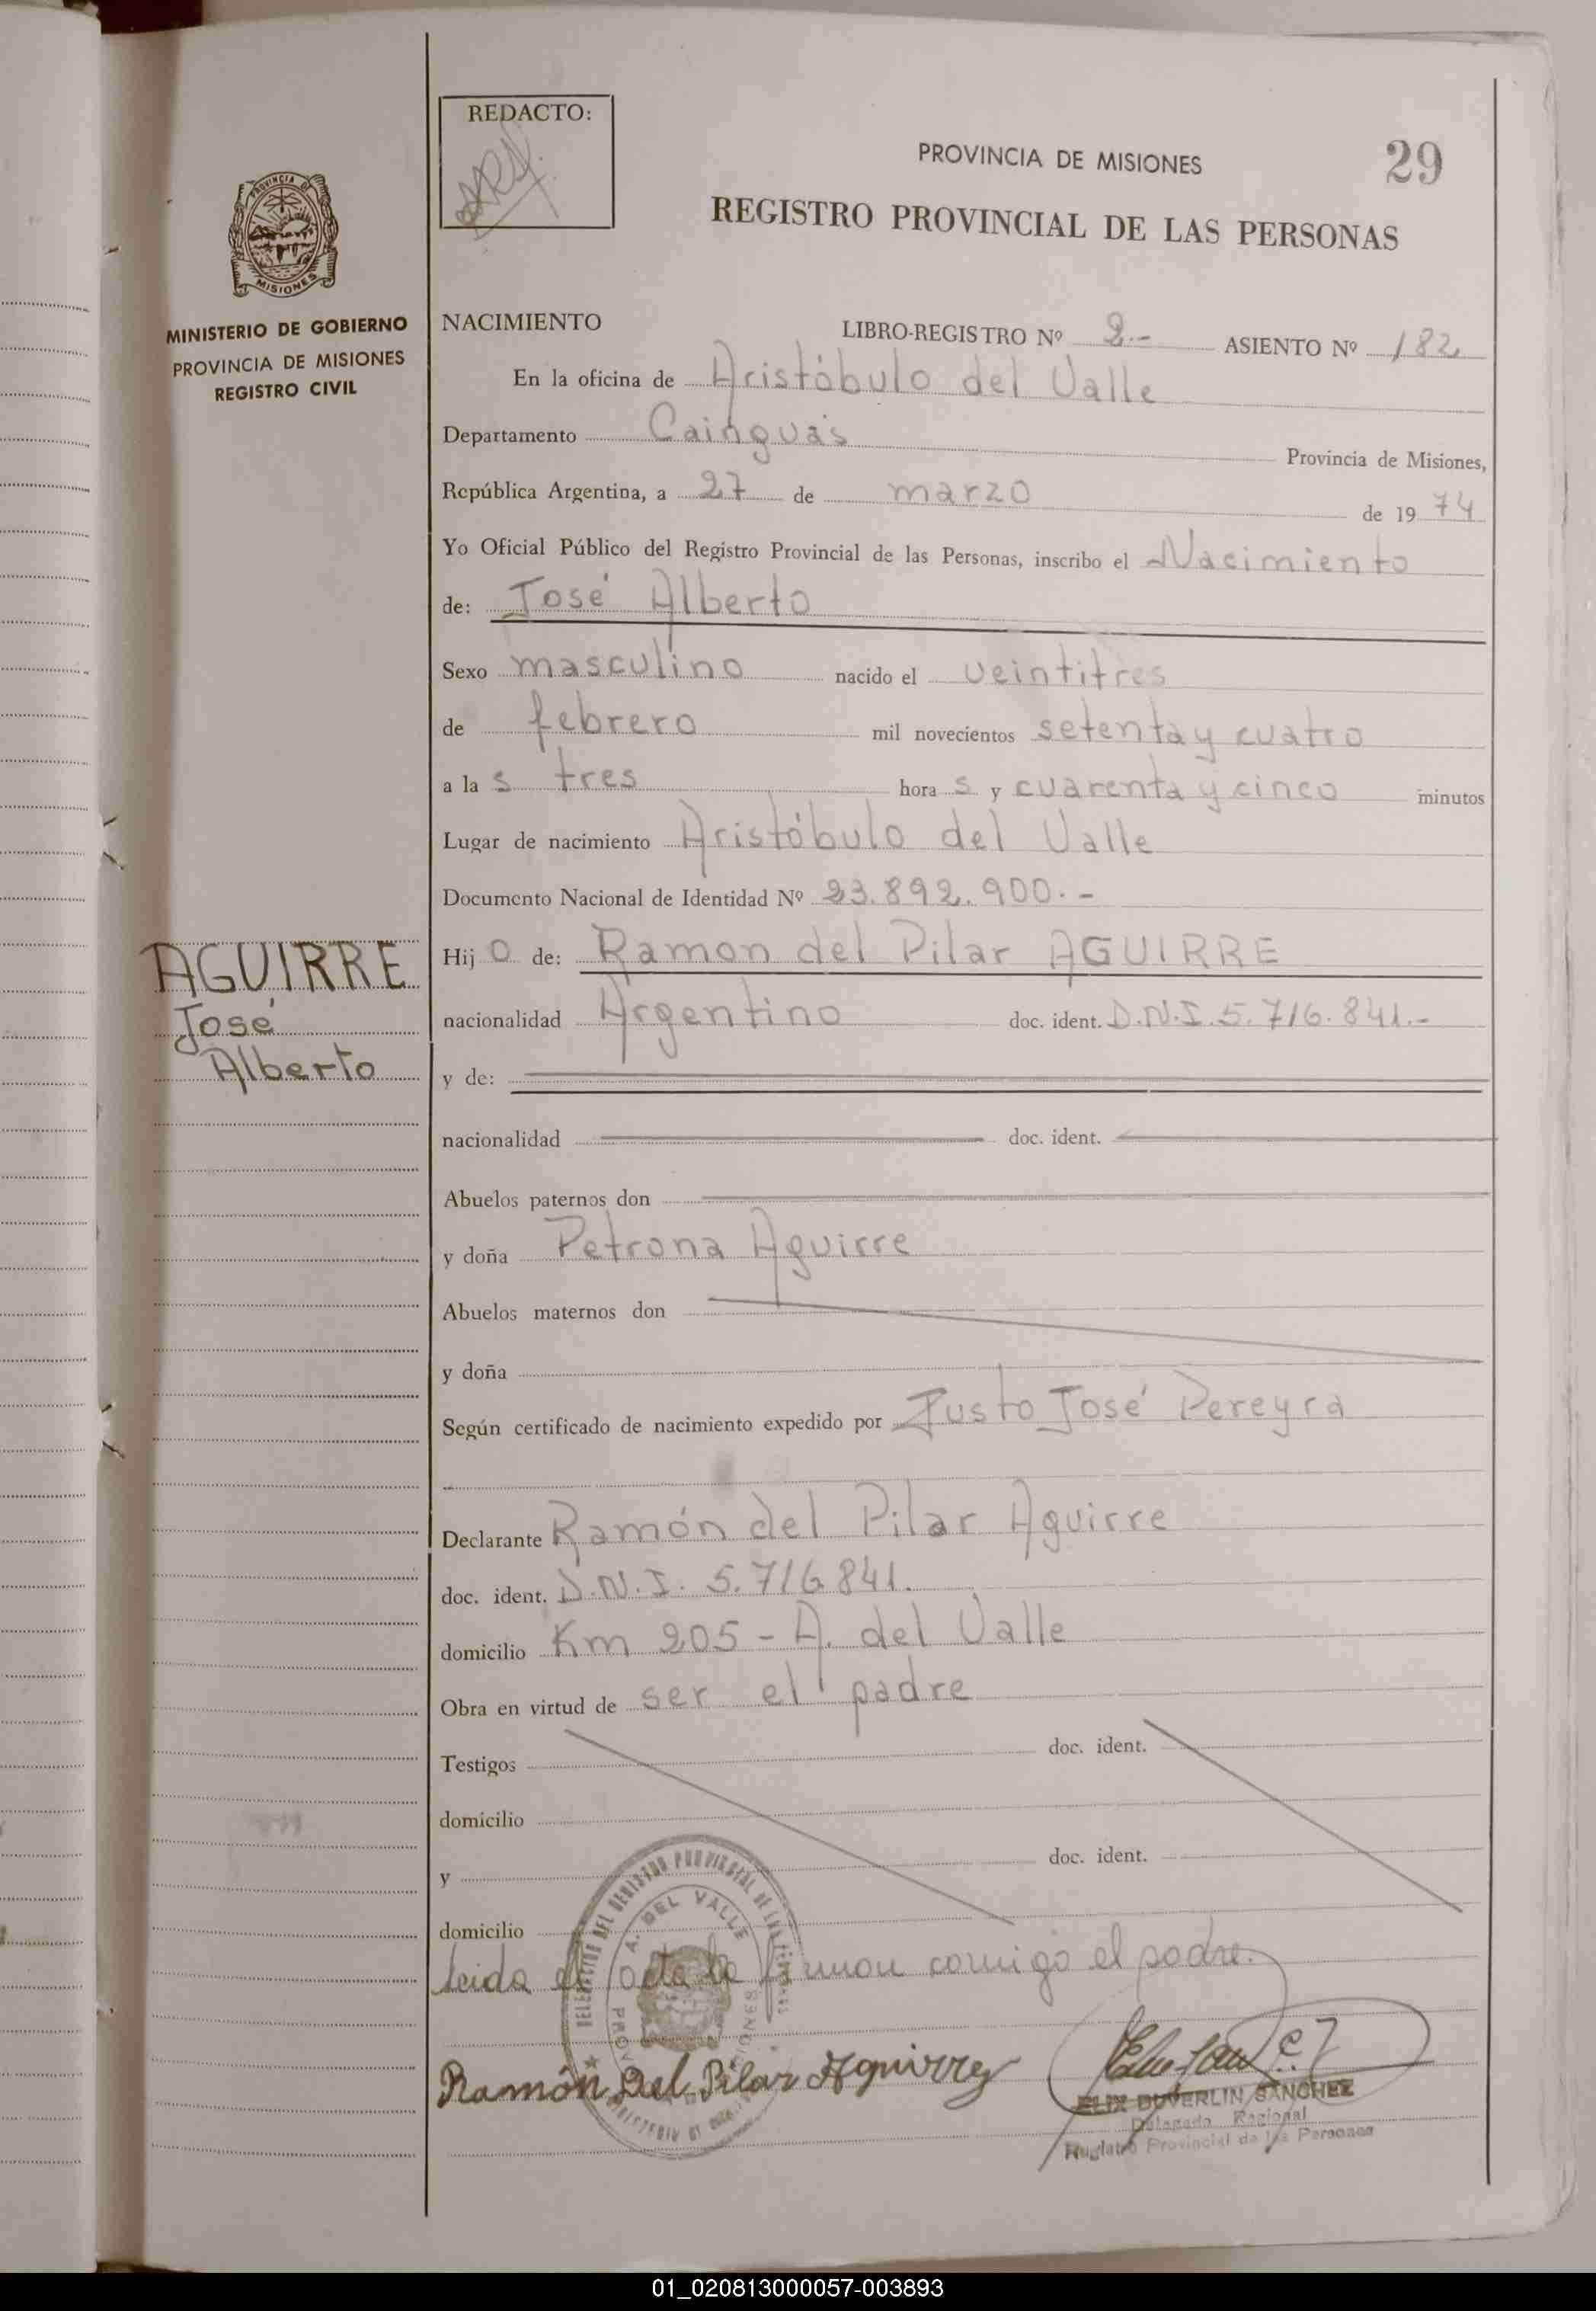 REDACTO:
PROVINCIA DE MISIONES
29
REGISTRO PROVINCIAL DE LAS PERSONAS
PROVINCIA DE
MISIONES
MINISTERIO DE GOBIERNO
PROVINCIA DE MISIONES
REGISTRO CIVIL
NACIMIENTO LIBRO-REGISTRO Nº 2.- ASIENTO Nº 182
En la oficina de Aristóbulo del Valle
Departamento Cainguás Provincia de Misiones,
República Argentina, a 27 de marzo de 19 74
Yo Oficial Público del Registro Provincial de las Personas, inscribo el Nacimiento
de: José Alberto
Sexo masculino nacido el veintitres
de febrero mil novecientos setenta y cuatro
a la s tres hora s y cuarenta y cinco minutos
Lugar de nacimiento Aristóbulo del Valle
Documento Nacional de Identidad Nº 23.892.900.-
AGUIRRE
José
Alberto
Hij o de: Ramon del Pilar AGUIRRE
nacionalidad Argentino doc. ident. D.N.I. 5.716.841.-
y de:
nacionalidad doc. ident.
Abuelos paternos don
y doña Petrona Aguirre
Abuelos maternos don
y doña
Según certificado de nacimiento expedido por Justo José Pereyra
Declarante Ramón del Pilar Aguirre
doc. ident. D.N.I. 5.716.841.
domicilio Km 205 - A. del Valle
Obra en virtud de ser el padre
Testigos doc. ident.
domicilio
y doc. ident.
domicilio
Leida el acta la firman comigo el padre.
DEL REGISTRO PROVINCIAL DE LAS
A. DEL VALLE
Ramón Del Pilar Aguirre
ELIX DUVERLIN SANCHEZ
Delegado Regional
Registro Provincial de las Personas
01_020813000057-003893